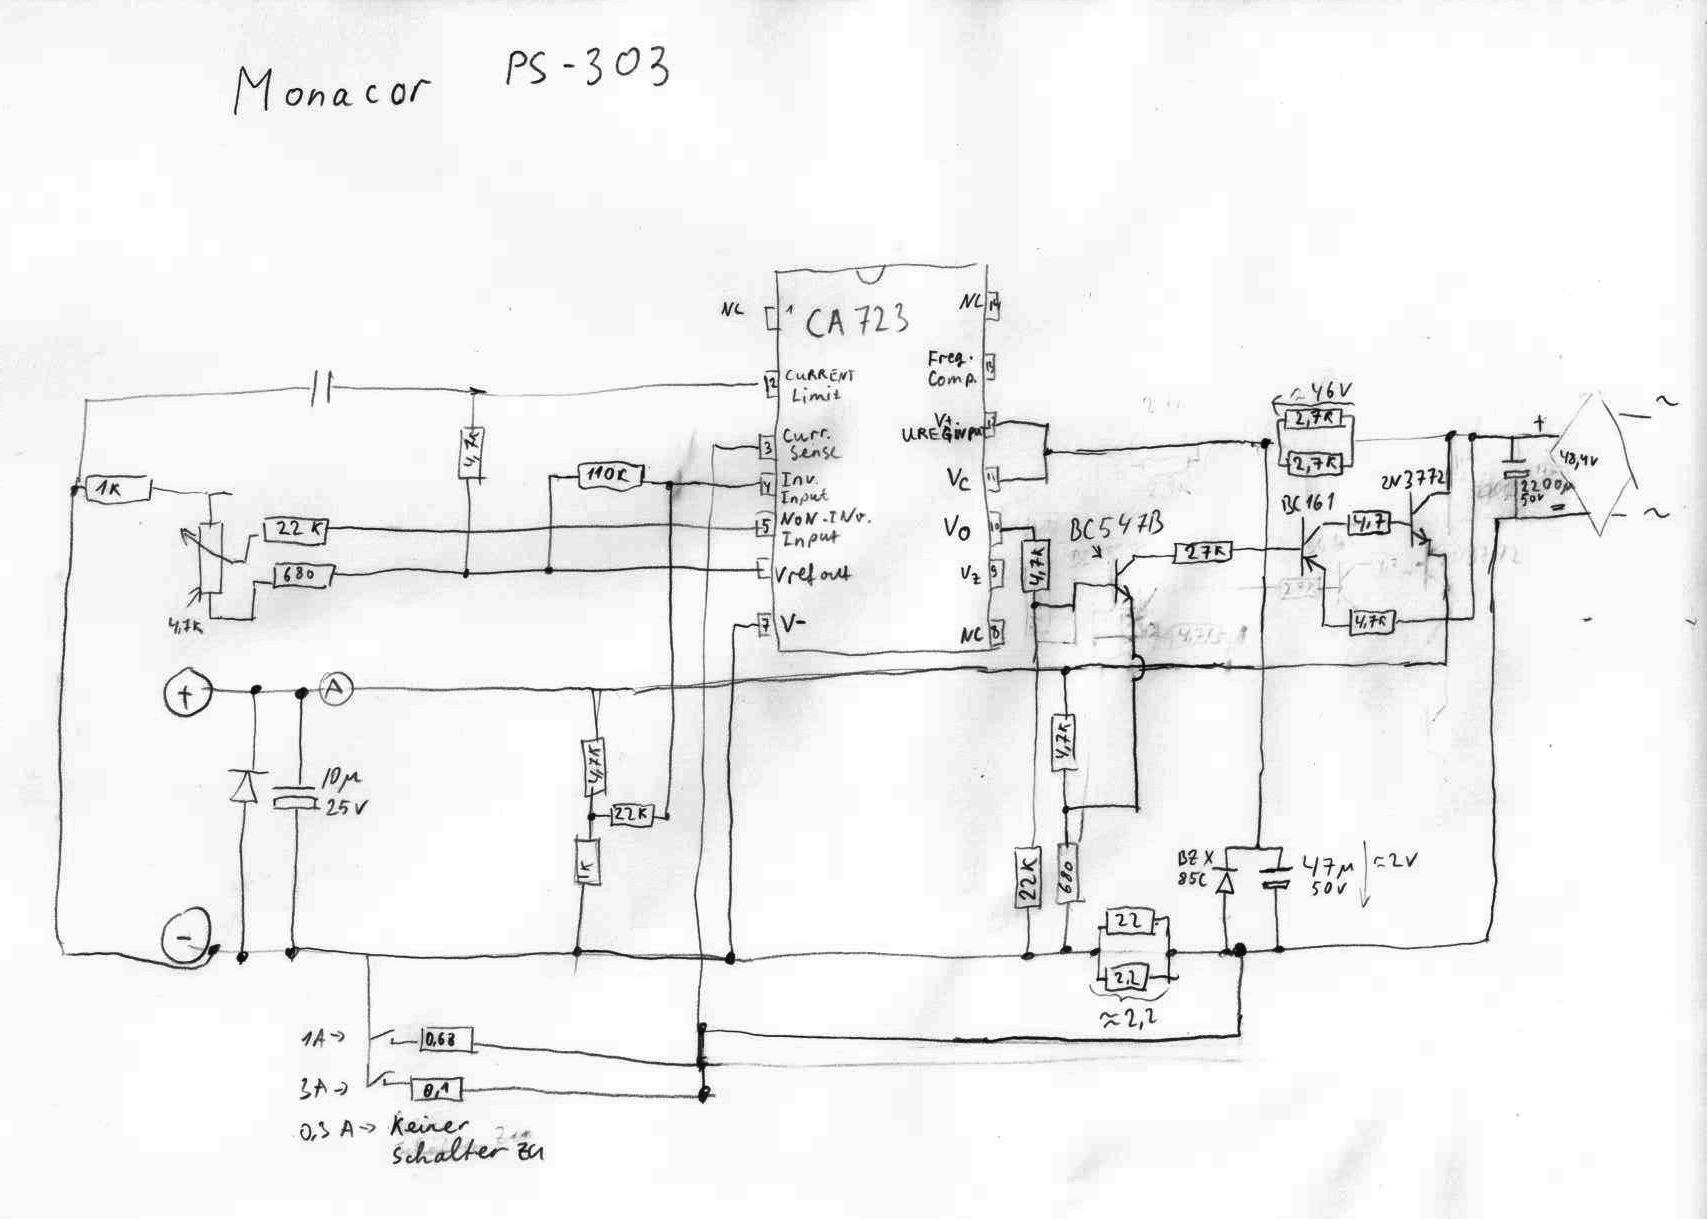 Monacor PS-303
NC
1
CA 723
NC
14
2
CURRENT
Limit
Freq.
Comp.
13
3
Curr.
Sense
V+
UREGinput
12
4
Inv.
Input
VC
11
5
NON-INV.
Input
VO
10
Vref out
VZ
9
7
V-
NC
8
1K
4,7K
110K
22K
680
4,7K
+
A
10µ
25V
4,7K
22K
1K
-
4,7K
BC547B
27K
BC161
4,7
2N3772
4,7K
≈46V
2,7K
2,7K
+
2200µ
50V
48,4V
~
~
4,7K
22K
680
22
2,2
≈2,2
BZX
85C
47µ
50V
≈2V
1A→
0,68
3A→
0,1
0,3 A→ Keiner
Schalter zu